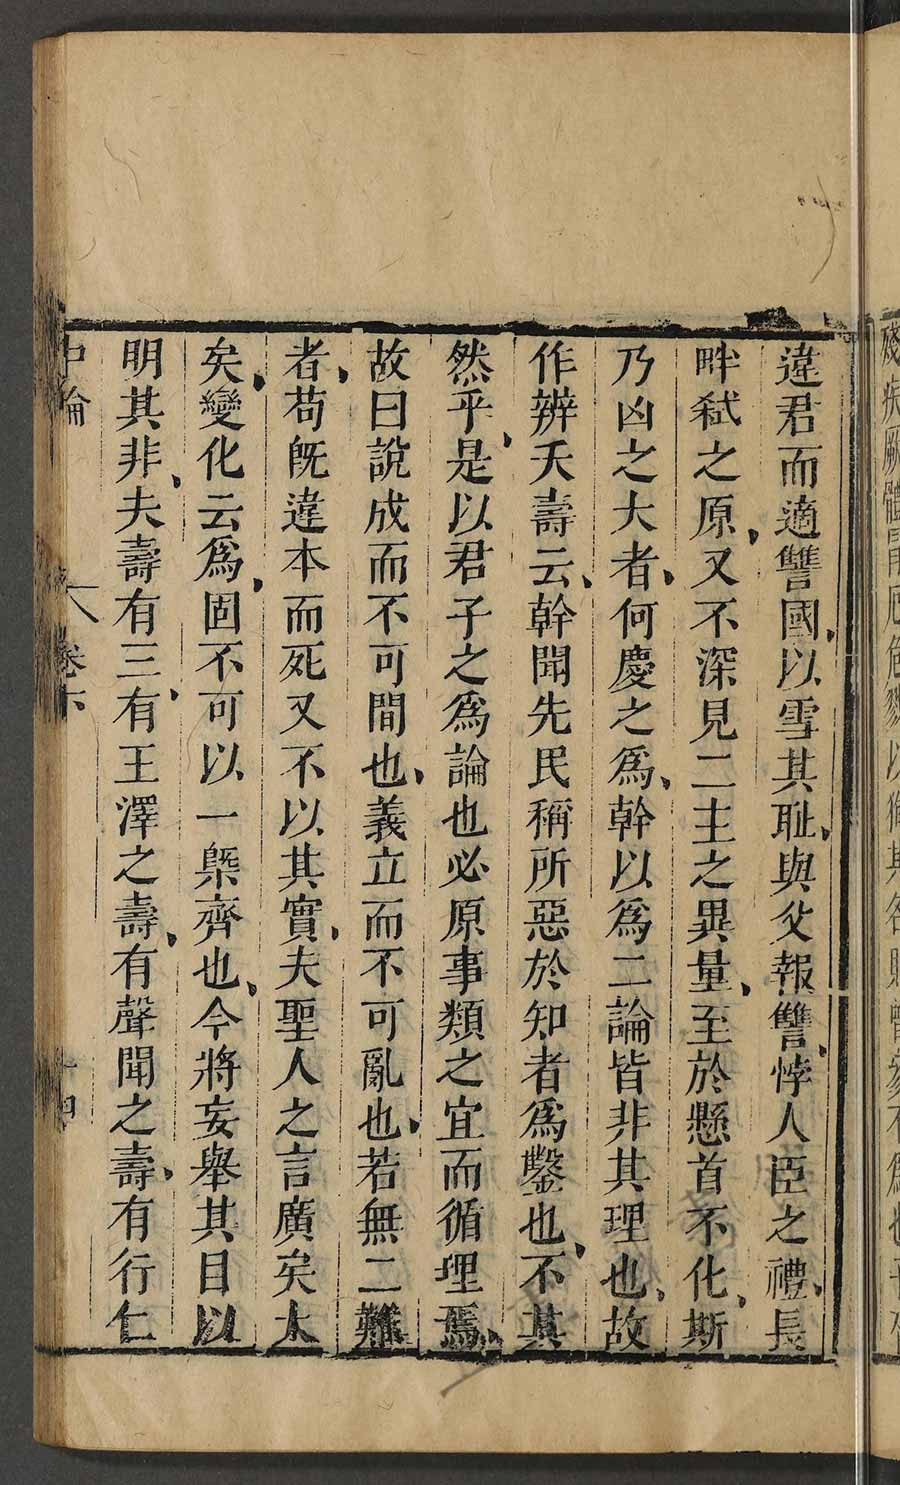 違君而適讐國以雪其耻與父報讐悖人臣之禮長
畔弑之原又不深見二主之異量至於懸首不化斯
乃凶之大者何慶之為幹以為二論皆非其理也故
作辨夭壽云幹聞先民稱所惡於知者為鑿也不其
然乎是以君子之為論也必原事類之宜而循理焉
故曰說成而不可間也義立而不可亂也若無二難
者苟旣違本而死又不以其實夫聖人之言廣矣大
矣變化云為固不可以一槩齊也今將妄舉其目以
明其非夫壽有三有王澤之壽有聲聞之壽有行仁
中論
卷下
十四